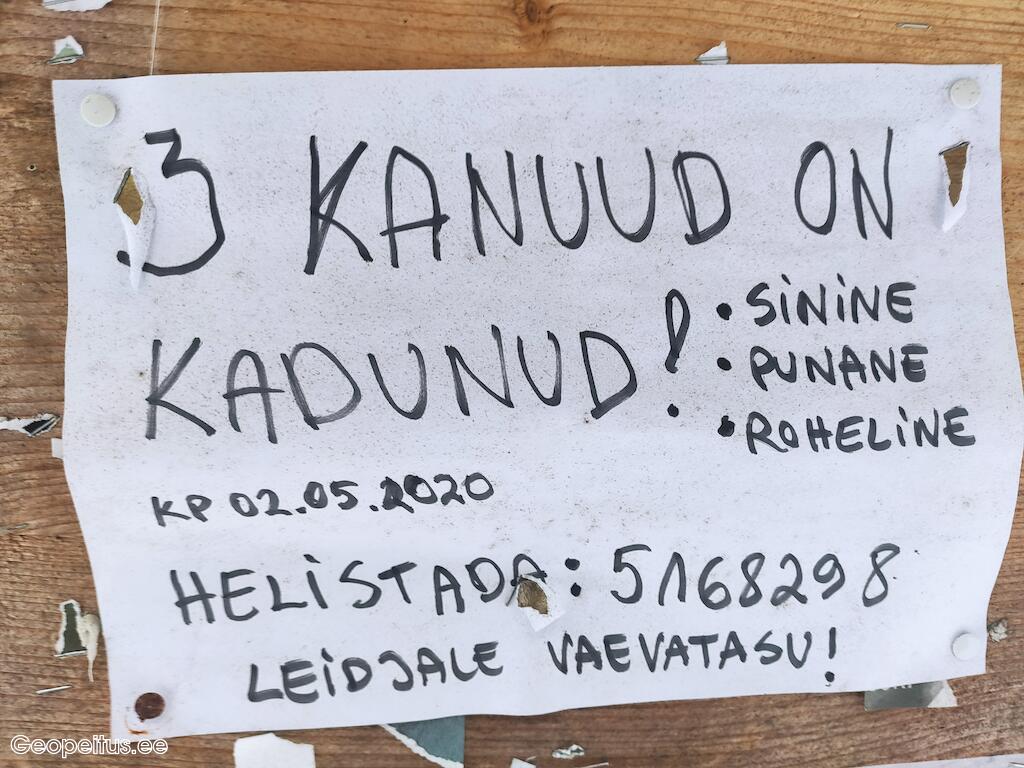 3 KANUUD ON
KADUNUD!
• SININE
• PUNANE
• ROHELINE
KP 02.05.2020
HELISTADA: 5168298
LEIDJALE VAEVATASU!
Geopeitus.ee